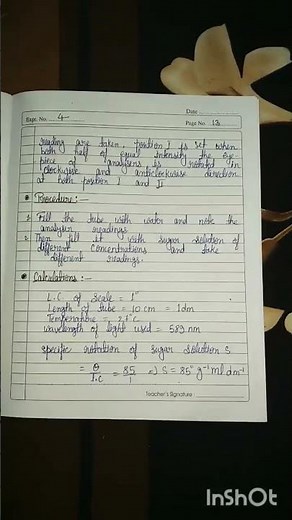 Date
Expt. No. 4
Page No. 13
reading are taken, position I is set when
both half of equal intensity the eye
piece of analysers is rotated in
clockwise and anticlockwise direction
at both position I and II
Procedure :-
1. Fill the tube with water and note the
analyser readings
2. Then fill it with sugar solution of
different concentrations and take
different readings.
Calculations :-
L.C. of scale = 1°
Length of tube = 10 cm = 1dm
Temperature = 21°C
wavelength of light used = 589 nm
specific rotation of sugar solution S
= θ/l.c = 85/1 => S = 85° g⁻¹ ml dm⁻¹
Teacher's Signature
InShOt